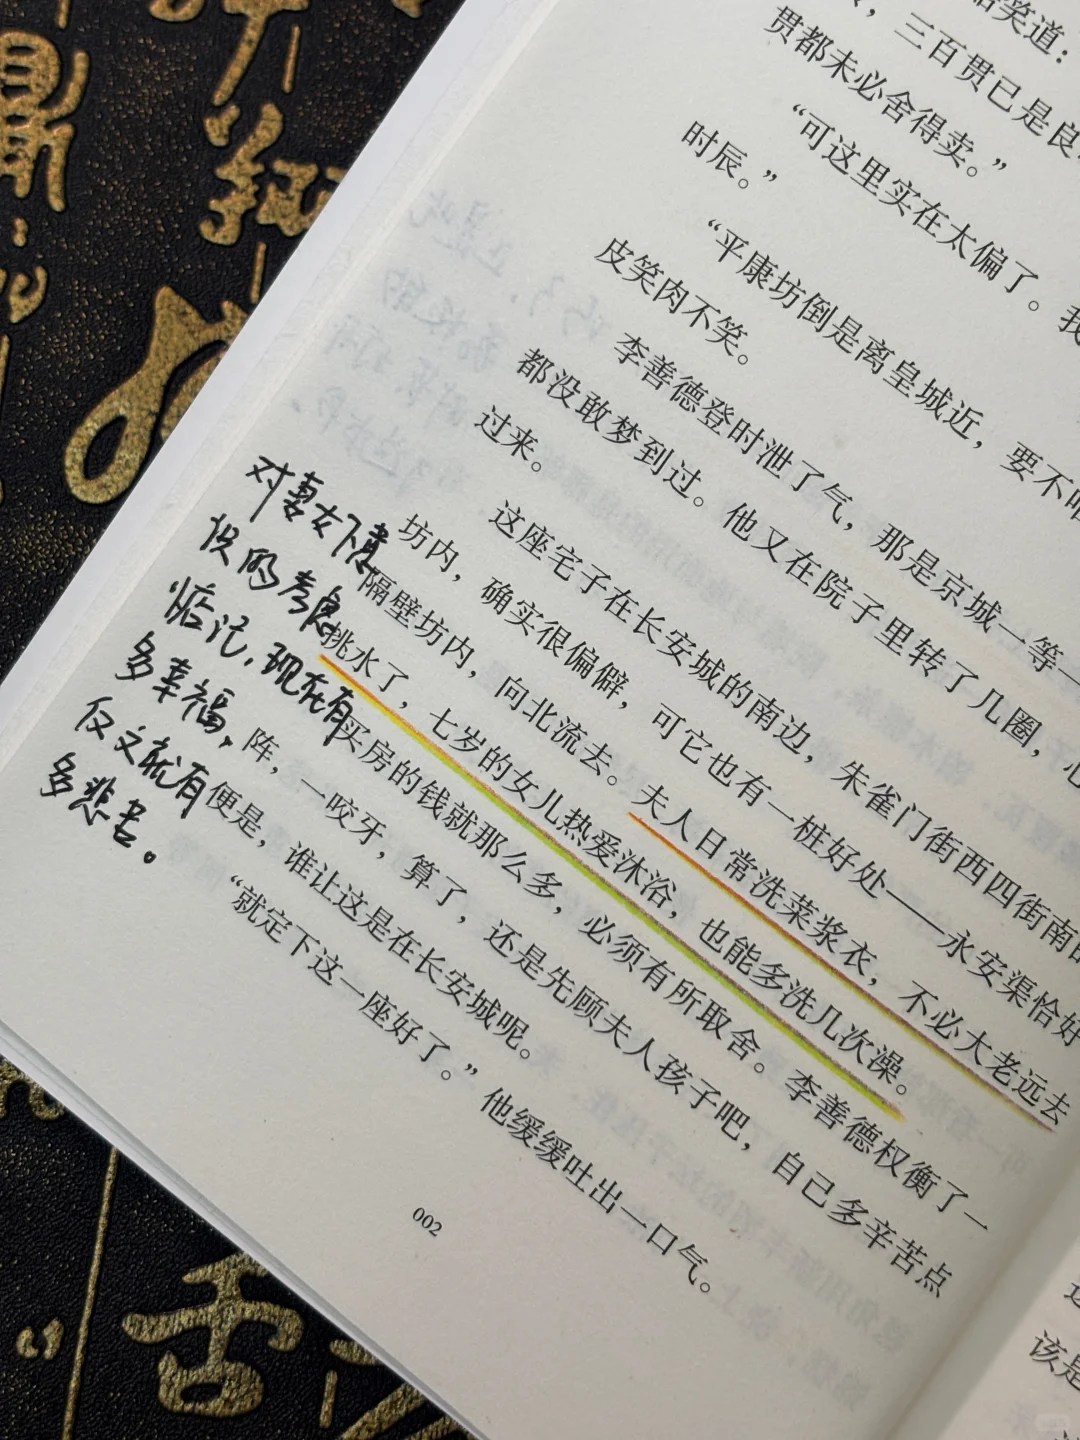 笑道：
，三百贯已是良
贯都未必舍得卖。”
“可这里实在太偏了。我
时辰。”
“平康坊倒是离皇城近，要不
皮笑肉不笑。
李善德登时泄了气，那是京城一等一
都没敢梦到过。他又在院子里转了几圈，心
过来。
这座宅子在长安城的南边，朱雀门街西四街南
坊内，确实很偏僻，可它也有一桩好处——永安渠恰好
隔壁坊内，向北流去。夫人日常洗菜浆衣，不必大老远去
挑水了，七岁的女儿热爱沐浴，也能多洗几次澡。
买房的钱就那么多，必须有所取舍。李善德权衡了一
阵，一咬牙，算了，还是先顾夫人孩子吧，自己多辛苦点
便是，谁让这是在长安城呢。
“就定下这一座好了。”他缓缓吐出一口气。
002
对妻女下意
识的考虑
惦记，现在有
多幸福，
后文就有
多悲苦。
该是